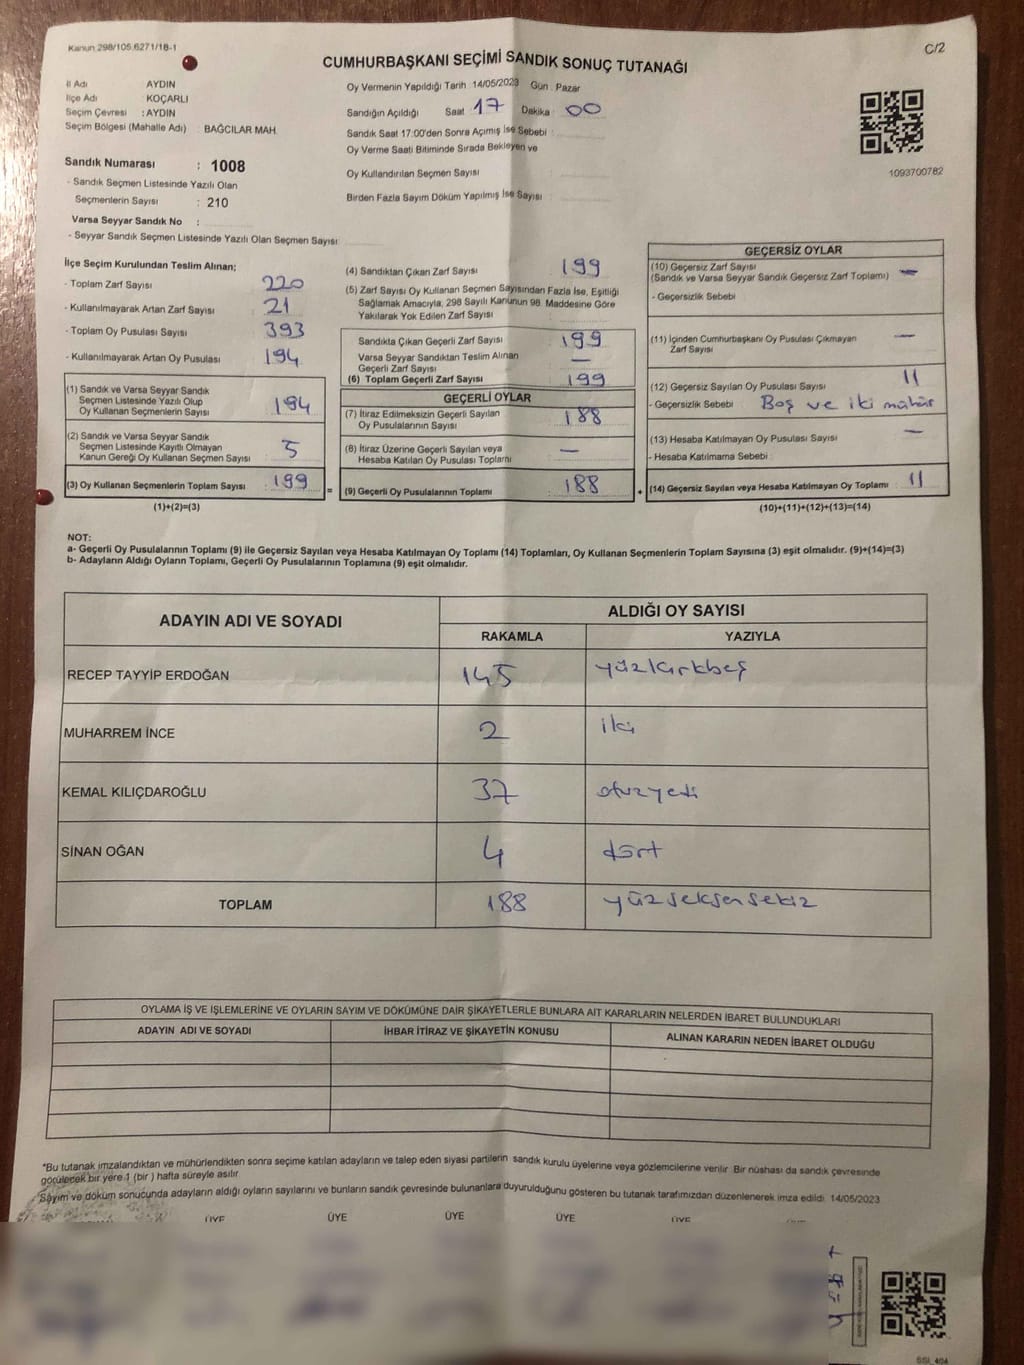 Kanun 298/105.6271/18-1
C/2
CUMHURBAŞKANI SEÇİMİ SANDIK SONUÇ TUTANAĞI
İl Adı AYDIN
İlçe Adı KOÇARLI
Seçim Çevresi : AYDIN
Seçim Bölgesi (Mahalle Adı) : BAĞCILAR MAH.
Sandık Numarası : 1008
- Sandık Seçmen Listesinde Yazılı Olan
Seçmenlerin Sayısı : 210
Varsa Seyyar Sandık No :
- Seyyar Sandık Seçmen Listesinde Yazılı Olan Seçmen Sayısı
Oy Vermenin Yapıldığı Tarih 14/05/2023 Gün : Pazar
Sandığın Açıldığı Saat 17 Dakika 00
Sandık Saat 17:00'den Sonra Açımış İse Sebebi :
Oy Verme Saati Bitiminde Sırada Bekleyen ve
Oy Kullandırılan Seçmen Sayısı
Birden Fazla Sayım Döküm Yapılmış İse Sayısı
1093700782
İlçe Seçim Kurulundan Teslim Alınan;
- Toplam Zarf Sayısı 220
- Kullanılmayarak Artan Zarf Sayısı 21
- Toplam Oy Pusulası Sayısı 393
- Kullanılmayarak Artan Oy Pusulası 194
(1) Sandık ve Varsa Seyyar Sandık
Seçmen Listesinde Yazılı Olup
Oy Kullanan Seçmenlerin Sayısı 194
(2) Sandık ve Varsa Seyyar Sandık
Seçmen Listesinde Kayıtlı Olmayan
Kanun Gereği Oy Kullanan Seçmen Sayısı 5
(3) Oy Kullanan Seçmenlerin Toplam Sayısı 199 =
(1)+(2)=(3)
(4) Sandıktan Çıkan Zarf Sayısı 199
(5) Zarf Sayısı Oy Kullanan Seçmen Sayısından Fazla İse, Eşitliği
Sağlamak Amacıyla, 298 Sayılı Kanunun 98. Maddesine Göre
Yakılarak Yok Edilen Zarf Sayısı
Sandıkta Çıkan Geçerli Zarf Sayısı 199
Varsa Seyyar Sandıktan Teslim Alınan
Geçerli Zarf Sayısı —
(6) Toplam Geçerli Zarf Sayısı 199
GEÇERLİ OYLAR
(7) İtiraz Edilmeksizin Geçerli Sayılan
Oy Pusulalarının Sayısı 188
(8) İtiraz Üzerine Geçerli Sayılan veya
Hesaba Katılan Oy Pusulası Toplamı —
(9) Geçerli Oy Pusulalarının Toplamı 188 +
GEÇERSİZ OYLAR
(10) Geçersiz Zarf Sayısı
(Sandık ve Varsa Seyyar Sandık Geçersiz Zarf Toplamı) —
- Geçersizlik Sebebi
(11) İçinden Cumhurbaşkanı Oy Pusulası Çıkmayan
Zarf Sayısı —
(12) Geçersiz Sayılan Oy Pusulası Sayısı 11
- Geçersizlik Sebebi Boş ve iki mühür
(13) Hesaba Katılmayan Oy Pusulası Sayısı —
- Hesaba Katılmama Sebebi
(14) Geçersiz Sayılan veya Hesaba Katılmayan Oy Toplamı 11
(10)+(11)+(12)+(13)=(14)
NOT:
a- Geçerli Oy Pusulalarının Toplamı (9) ile Geçersiz Sayılan veya Hesaba Katılmayan Oy Toplamı (14) Toplamları, Oy Kullanan Seçmenlerin Toplam Sayısına (3) eşit olmalıdır. (9)+(14)=(3)
b- Adayların Aldığı Oyların Toplamı, Geçerli Oy Pusulalarının Toplamına (9) eşit olmalıdır.
ADAYIN ADI VE SOYADI
ALDIĞI OY SAYISI
RAKAMLA YAZIYLA
RECEP TAYYİP ERDOĞAN 145 yüzkırkbeş
MUHARREM İNCE 2 iki
KEMAL KILIÇDAROĞLU 37 otuzyedi
SİNAN OĞAN 4 dört
TOPLAM 188 yüzseksensekiz
OYLAMA İŞ VE İŞLEMLERİNE VE OYLARIN SAYIM VE DÖKÜMÜNE DAİR ŞİKAYETLERLE BUNLARA AİT KARARLARIN NELERDEN İBARET BULUNDUKLARI
ADAYIN ADI VE SOYADI İHBAR İTİRAZ VE ŞİKAYETİN KONUSU ALINAN KARARIN NEDEN İBARET OLDUĞU
*Bu tutanak imzalandıktan ve mühürlendikten sonra seçime katılan adayların ve talep eden siyasi partilerin sandık kurulu üyelerine veya gözlemcilerine verilir. Bir nüshası da sandık çevresinde
görülecek bir yere 1 (bir) hafta süreyle asılır.
Sayım ve döküm sonucunda adayların aldığı oyların sayılarını ve bunların sandık çevresinde bulunanlara duyurulduğunu gösteren bu tutanak tarafımızdan düzenlenerek imza edildi. 14/05/2023
ÜYE ÜYE ÜYE ÜYE ÜYE